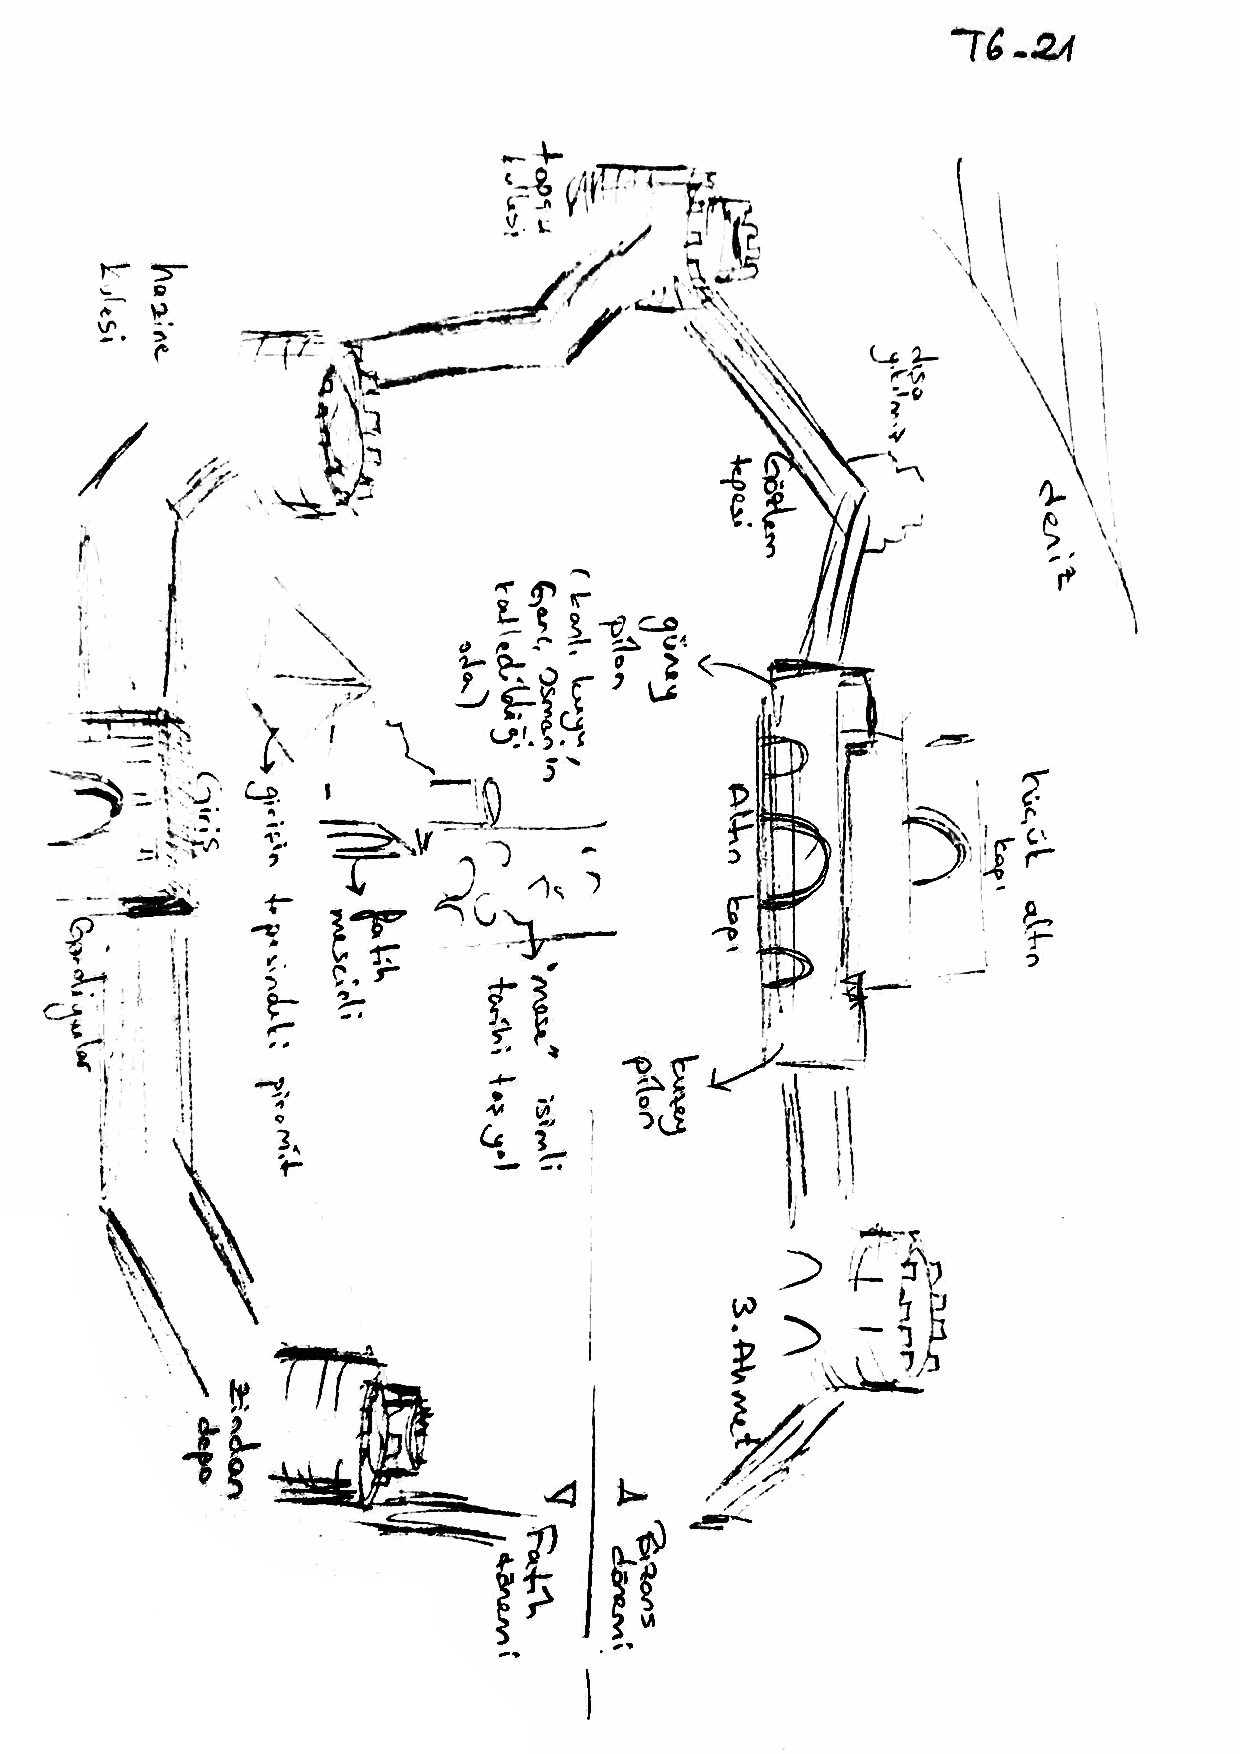 T6-21
deniz
küçük altın
kapı
dışa
yıkılmış
Gözlem
tepesi
Altın kapı
3. Ahmet
güney
pilon
(kanlı kuyu,
Genç Osman'ın
katledildiği
oda)
kuzey
pilon
Bizans
dönemi
Fatih
dönemi
topçu
kulesi
"mese" isimli
tarihi taş yol
fatih
mescidi
girişin tepesindeki piramit
zindan
depo
Giriş
hazine
kulesi
Gardiyanlar